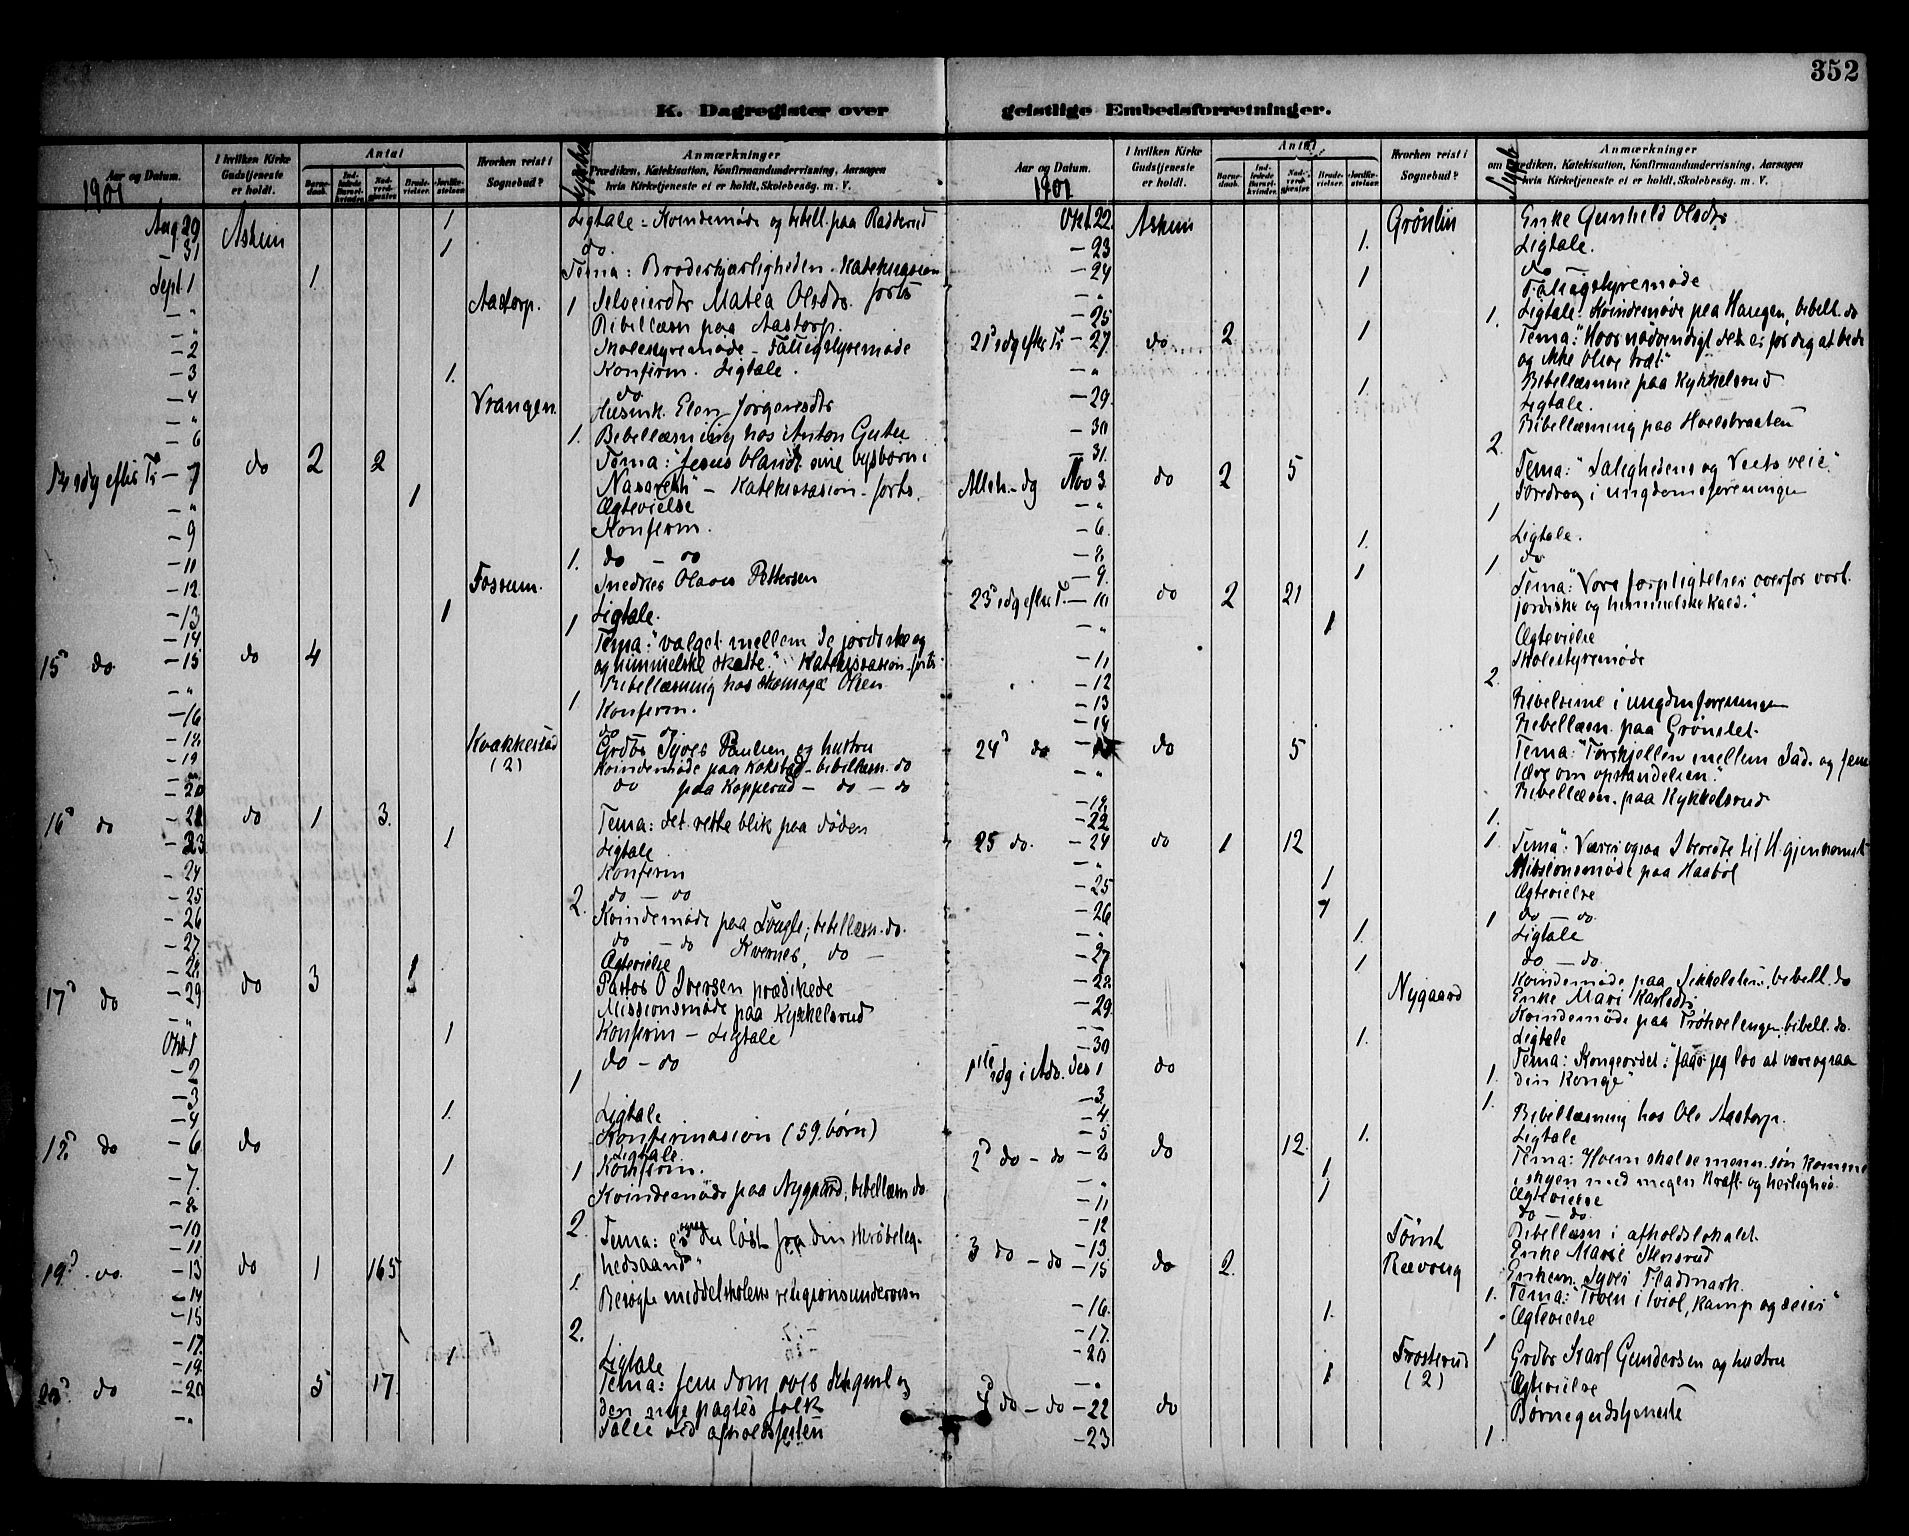 352
K. Dagregister over geistlige Embedsforretninger.
Aar og Datum.
I hvilken Kirke Gudstjeneste er holdt.
Antal
Barnedaab.
Indledede Barselkvinder.
Nadverdgjester.
Brudevielser.
Jordfæstelser.
Hvorhen reist i Sognebud?
Anmærkninger
Prædiken, Katekisation, Konfirmandundervisning, Aarsagen
hvis Kirketjeneste ei er holdt, Skolebesøg, m. V.
1901
Aug 29 Askim 1 Ligtale - Kvindemøde og bibell. paa Radderud
- 31 1 do
Sept 1 1 Tema: Broderkjærligheden. Katekisasion
- " Aastorp. 1 Selveierdtr Matea Olsdtr. forts
- " Bibellæsn paa Aastorp.
- 2 Skolestyremøde - Fattigstyremøde
- 3 1. Konfirm. Ligtale.
- 4 Vrangen do
- " Husmk. Elen Jørgensdtr
- 6 1. Bibellæsning hos Anton Guten
14 sdg efter Tr - 7 do 2 2 Tema: "Jesus blandt sine bysbørn i
Nasareth" - Katekisasion - forts.
- " 1 Ægtevielse
- 9 Konfirm.
- 11 1. do - do
- 12 Fossum. Snedker Olaves Pettersen
- 13 1 Ligtale.
- 14 1
15d do - 15 do 4 Tema: "valget mellem de jordiske og
og himmelske skatte." Katekisasion - forts
- " Bibellæsning hos skomager Olsen
- 16 1 Konfirm.
- 18 Kvakkestad do
(2) Grdbr Syver Paulsen og hustru
- 19 Kvindemøde paa Kokstad - bibellæsn. do
- 20 do paa Kopperud - do - do
16d do - 22 do 1 3. Tema: det rette blik paa døden
- 23 1 Ligtale
- 24 Konfirm
- 25 2. do - do
- 26 Kvindemøde paa Fougle; bibellæsn. do.
- 27 do - do Kvernes, do -
- 28 1 Ægtevielse
17d do - 29 do 3 Pastor O Iversen prædikede
- " Missionsmøde paa Kykkelsrud
Okt 1 1 Konfirm - Ligtale
- 2 do - do
- 3 1
- 4 1. Ligtale
18d do - 6 do Konfirmasion (59. børn)
Ligtale
- 7. 1 1 Konfirm.
- 8 Kvindemøde paa Nygaard, bibellæsn do
- 10 2.
- 11 Tema: du løst fra din skrøbelig-
19d do - 13 do 1 165 hedsaand"
- 14 1.
- 15 Besøgte middelskolens religionsundervisn
- 17. 2.
- 19 1 Ligtale
20d do - 20 5 17 Tema: Jerudom over det gml og
den nye pagtes folk
- " Tale ved afholdsfesten
Aar og Datum.
I hvilken Kirke Gudstjeneste er holdt.
Antal
Barnedaab.
Indledede Barselkvinder.
Nadverdgjester.
Brudevielser.
Jordfæstelser.
Hvorhen reist i Sognebud?
Anmærkninger
om Prædiken, Katekisation, Konfirmandundervisning, Aarsagen
hvis Kirketjeneste ei er holdt, Skolebesøg, m. V.
1901
Okt. 22. Askim Grønlin Enke Gunhild Olsdtr
- 23 1. Ligtale.
- 24 1 do
- " Fattigstyremøde
- 25 1. Ligtale. Kvindemøde paa Haugen, bibell. do
21d sdg efter Tr - 27. do 2 1 Tema: "Hvor nødvendigt det er for dig at bede
og ikke blive træt"
- " Bibellæsning paa Kykkelsrud
- 29. 1 Ligtale.
- 30 Bibellæsning paa Hoelsbraaten
- 31. 2.
Alleh.-dg Nov 3. do 2 5 Tema: "Salighedens og Veets veie."
- " Foredrag i ungdomsforeningen
- 6. 1
- 8 1. Ligtale.
- 9. 1 1 do
23d sdg efter T. - 10 do 2 21 Tema: "Vore forpligtelser overfor vort
jordiske og himmelske kald."
- " 1 Ægtevielse
- 11 Skolestyremøde
- 12 2.
- 13 Bibeltime i ungdmsforeningen
- 14 Bibellæsn. paa Grønslet.
24d do do 5 Tema: "Forskjellen mellem Sad. og Jesu
lære om opstandelsen."
- " Bibellæsn. paa Kykkelsrud
- 18
- 22 1.
25 do. - 24 do 1 12 1. Tema: "Værer ogsaa I beredte til H. gjenkomst
- " Missionsmøde paa Haabøl
- 25 1 Ægtevielse
- 26 1 1 do - do
- " 1. Ligtale
- 27 1 do - do.
- 28 Nygaard Kvindemøde paa Sikkelsten, bibell. do
- 29. Enke Mari Karlsdtr
- - Kvindemøde paa Trøhvelengen, bibell. do.
- 30 1. Ligtale
1ste sdg i Adv. Des 1 do Tema: Kongeordet: "faar jeg lov at være ogsaa
1. din konge"
- 3. 1.
- 4. Bibellæsning hos Ole Aastorp.
- 5 1. Ligtale
2d do - do - 8 do 12. Tema: Hvem skal se menn. søn komme
1 i skyen med megen kraft og herlighed.
- " Ægtevielse
- 11 1 do - do.
- 12 Bibellæsn i afholdslokalet.
- 13 Tømt Enke Marie Stensrud
3 do - do - 15 do 2. Rævoug Enkem. Syver Fladmark.
1. Tema: "Troen i tvivl, kamp og seier"
- 16. 1. Ægtevielse
- 17. 1
- 20 Frosterud Grdbr Karl Gundersen og hustru
- " 1 (2) Ægtevielse
4d do - do - 22 do Børnegudstjeneste
- 23 1.